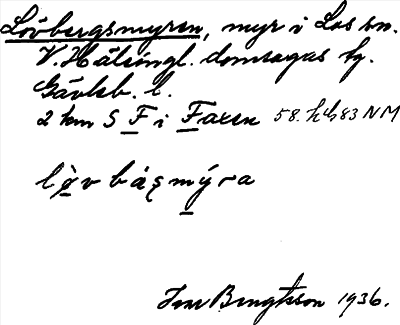 Lövbergsmyren, myr i Los sn.
V. Hälsingl. domsagas tg.
Gävleb. l.
2 km S F i Faxen 58. h 83 NM
lòvbáșmýra
Bengtsson 1936.